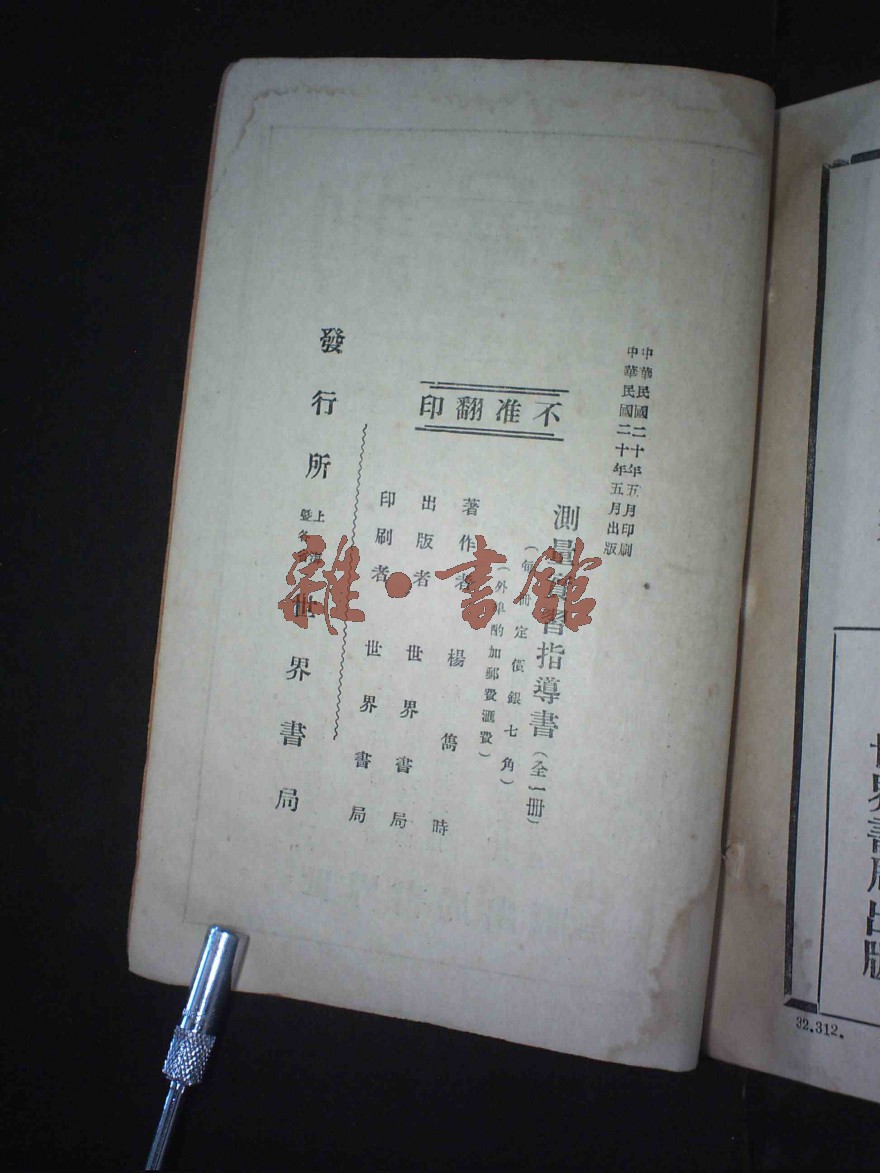 中華民國二十年五月印刷
中華民國二十年五月出版
不准翻印
測量實習指導書(全一冊)
(每冊定價銀七角)
(外埠酌加郵費滙費)
著作者 楊 雋 時
出版者 世界書局
印刷者 世界書局
發行所 上海 世界書局
暨各
雜·書館
世界書局出版
32.312.